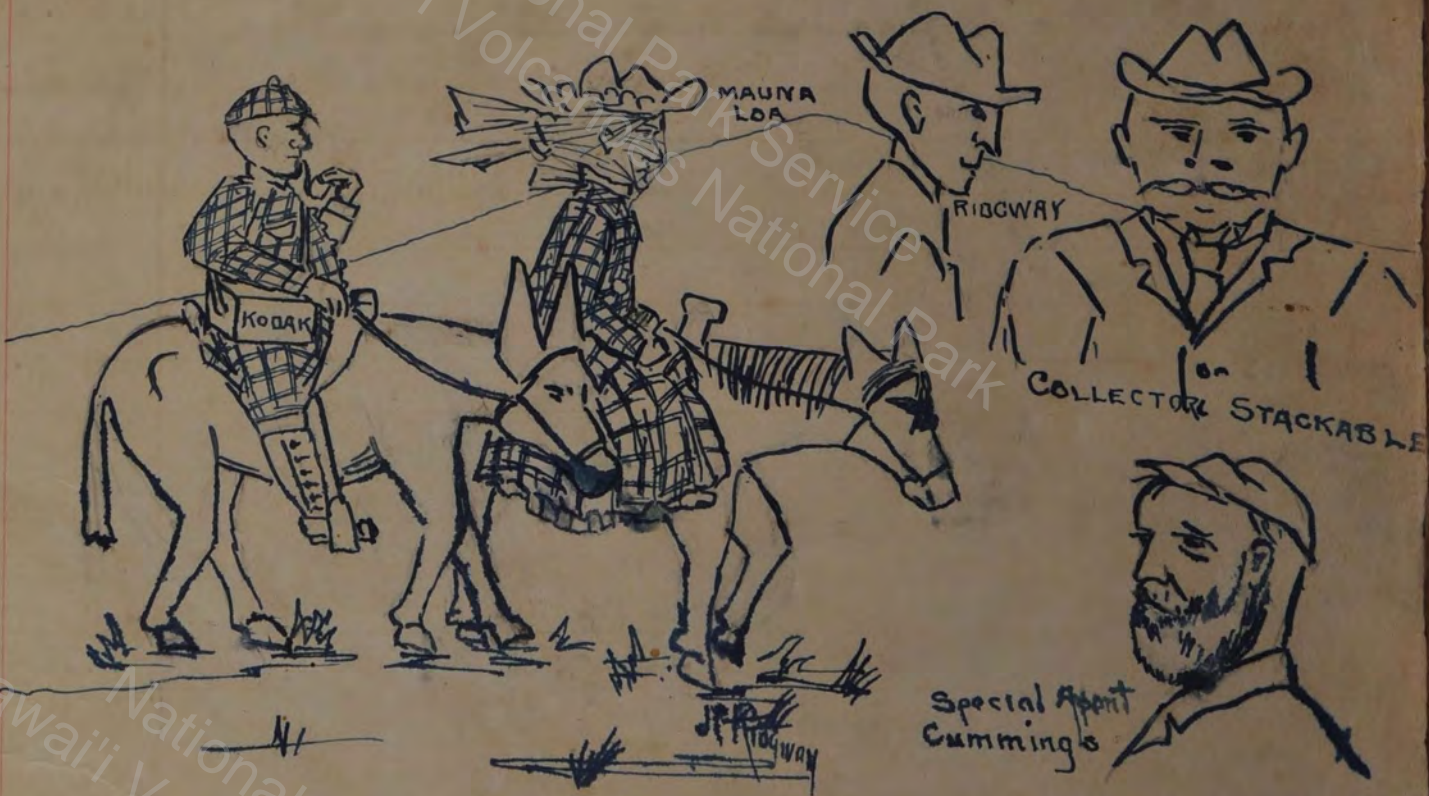 MAUNA
LOA
RIDGWAY
KODAK
COLLECTOR STACKABLE
Special Agent
Cummings
Ridgway
National Park Service
Volcanoes National Park
National